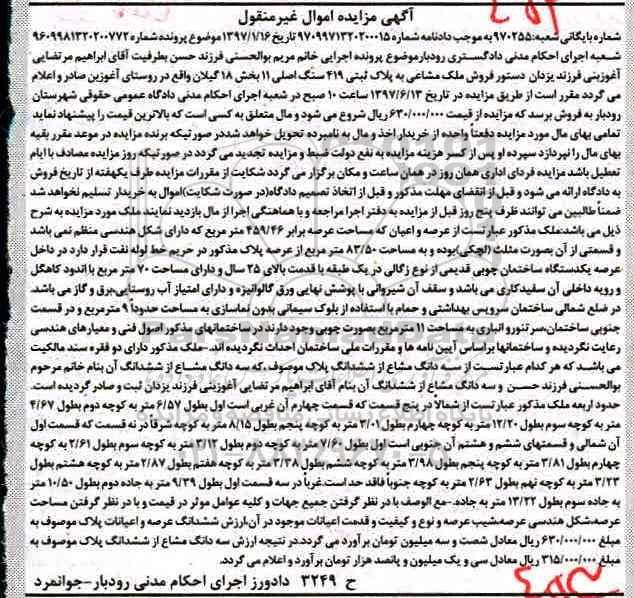 آگهی مزایده اموال غیرمنقول
شماره بایگانی شعبه:۹۷۰۲۵۵ به موجب دادنامه شماره ۹۷۰۹۹۷۱۳۲۰۲۰۰۰۱۵ تاریخ ۱۳۹۷/۱/۱۶ موضوع پرونده شماره ۹۶۰۹۹۸۱۳۲۰۲۰۰۷۷۲
شعبه اجرای احکام مدنی دادگستری رودبارموضوع پرونده اجرایی خانم مریم بوالحسنی فرزند حسن بطرفیت آقای ابراهیم مرتضایی
آغوزبنی فرزند یزدان دستور فروش ملک مشاعی به پلاک ثبتی ۴۱۹ سنگ اصلی ۱۱ بخش ۱۸ گیلان واقع در روستای آغوزبن صادر و اعلام
می گردد مقرر است از طریق مزایده در تاریخ ۱۳۹۷/۶/۱۳ ساعت ۱۰ صبح در شعبه اجرای احکام مدنی دادگاه عمومی حقوقی شهرستان
رودبار به فروش برسد که مزایده از قیمت ۶۳۰/۰۰۰/۰۰۰ ریال شروع می شود و مال متعلق به کسی است که بالاترین قیمت را پیشنهاد نماید
تمامی بهای مال مورد مزایده دفعتاً واحده از خریدار اخذ و مال به نامبرده تحویل خواهد شددر صورتیکه برنده مزایده در موعد مقرر بقیه
بهای مال را نپردازد سپرده او پس از کسر هزینه مزایده به نفع دولت ضبط و مزایده تجدید می گردد در صورتیکه روز مزایده مصادف با ایام
تعطیل باشد مزایده فردای اداری همان روز در همان ساعت و مکان برگزار می گردد شکایت از مقررات مزایده ظرف یکهفته از تاریخ فروش
به دادگاه ارائه می شود و قبل از انقضای مهلت مذکور و قبل از اتخاذ تصمیم دادگاه(در صورت شکایت)اموال به خریدار تسلیم نخواهد شد
ضمناً طالبین می توانند ظرف پنج روز قبل از مزایده به دفتر اجرا مراجعه و با هماهنگی اجرا از مال بازدید نمایند. ملک مورد مزایده به شرح
ذیل می باشد:ملک مذکور عبارتست از عرصه و اعیان که مساحت عرصه برابر ۴۵۹/۴۶ متر مربع که دارای شکل هندسی منظم نمی باشد
و قسمتی از آن بصورت مثلث (لچکی)بوده و به مساحت ۸۳/۵۰ متر مربع از عرصه پلاک مذکور در حریم خط لوله نفت قرار دارد در داخل
عرصه یکدستگاه ساختمان چوبی قدیمی از نوع زگالی در یک طبقه با قدمت بالای ۲۵ سال و دارای مساحت ۷۰ متر مربع با اندود کاهگل
و رویه داخلی آن سفیدکاری می باشد و سقف آن شیروانی با پوشش نهایی ورق گالوانیزه و دارای امتیاز آب روستایی،برق و گاز می باشد.
در ضلع شمالی ساختمان سرویس بهداشتی و حمام با استفاده از بلوک سیمانی بدون نماسازی به مساحت حدوداً ۹ مترمربع و در قسمت
جنوبی ساختمان،سر تنورو انباری به مساحت ۱۱ مترمربع بصورت چوبی وجود دارند در ساختمانهای مذکور اصول فنی و معیارهای هندسی
رعایت نگردیده و ساختمانها براساس آیین نامه ها و مقررات ملی ساختمان احداث نگردیده اند. ملک مذکور دارای دو فقره سند مالکیت
می باشد که هر کدام عبارتست از سه دانگ مشاع از ششدانگ پلاک موصوف،که سه دانگ مشاع از ششدانگ آن بنام خانم مرحوم
بوالحسنی فرزند حسن و سه دانگ مشاع از ششدانگ آن بنام آقای ابراهیم مرتضایی آغوزبنی فرزند یزدان ثبت و صادر گردیده است.
حدود اربعه ملک مذکور عبارتست از شمالاً در پنج قسمت که قسمت چهارم آن غربی است اول بطول ۶/۵۷ متر به کوچه دوم بطول ۴/۶۷
متر به کوچه سوم بطول ۱۲/۲۰ متر به کوچه چهارم بطول ۳/۰۱ متر به کوچه پنجم بطول ۸/۱۵ متر به کوچه شرقاً در نه قسمت که قسمت اول
آن شمالی و قسمتهای ششم و هشتم آن جنوبی است اول بطول ۷/۶۰ متر به کوچه دوم بطول ۳/۱۲ متر به کوچه سوم بطول ۲/۶۱ به کوچه
چهارم بطول ۳/۸۱ متر به کوچه پنجم بطول ۳/۹۸ متر به کوچه ششم بطول ۳/۳۸ متر به کوچه هفتم بطول ۲/۸۷ متر به کوچه هشتم بطول
۳/۲۳ متر به کوچه نهم بطول ۲/۶۳ متر به کوچه جنوباً فاقد حد است.غرباً در سه قسمت اول بطول ۹/۳۹ متر به جاده دوم بطول ۱۰/۵۰ متر
به جاده سوم بطول ۱۳/۲۲ متر به جاده.-مع الوصف با در نظر گرفتن جمیع جهات و کلیه عوامل موثر در قیمت و با در نظر گرفتن مساحت
عرصه،شکل هندسی عرصه،شیب عرصه و نوع و کیفیت و قدمت اعیانات موجود در آن،ارزش ششدانگ عرصه و اعیانات پلاک موصوف به
مبلغ ۶۳۰/۰۰۰/۰۰۰ ریال معادل شصت و سه میلیون تومان برآورد می گردد.در نتیجه ارزش سه دانگ مشاع از ششدانگ پلاک موصوف به
مبلغ ۳۱۵/۰۰۰/۰۰۰ ریال معادل سی و یک میلیون و پانصد هزار تومان برآورد و اعلام می گردد.
ح ۳۲۴۹ دادورز اجرای احکام مدنی رودبار-جوانمرد